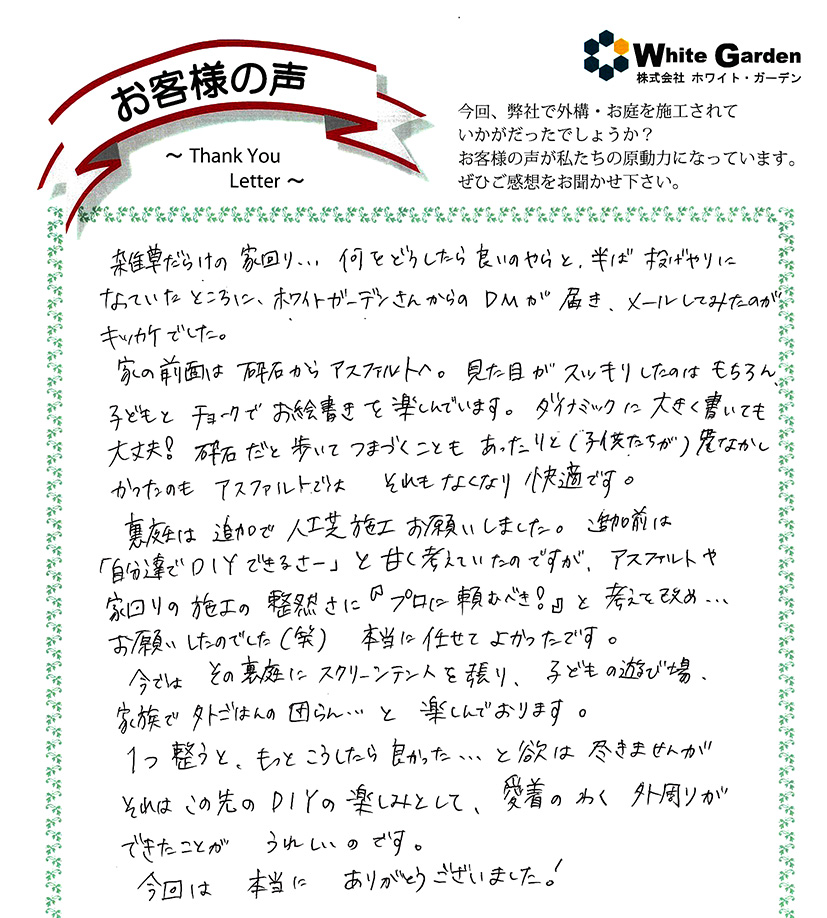 お客様の声
～ Thank You
Letter ～
White Garden
株式会社 ホワイト・ガーデン
今回、弊社で外構・お庭を施工されて
いかがだったでしょうか？
お客様の声が私たちの原動力になっています。
ぜひご感想をお聞かせ下さい。
雑草だらけの 家回り… 何をどうしたら良いのやらと、半ば 投げやりに
なっていた ところに、ホワイトガーデンさんからの DMが 届き、メールしてみたのが
キッカケでした。
家の前面は 砕石から アスファルトへ。見た目が スッキリしたのは もちろん、
子どもと チョークで お絵書きを 楽しんでいます。ダイナミックに 大きく書いても
大丈夫！ 砕石だと 歩いて つまづくことも あったりと（子供たちが）危なかし
かったのも アスファルトでは それも なくなり 快適です。
裏庭は 追加で 人工芝施工 お願いしました。追加前は
「自分達でDIYできるさー」と 甘く考えていたのですが、アスファルトや
家回りの 施工の 整然さに『プロに頼むべき！』と 考えを改め…
お願いしたのでした（笑） 本当に任せて よかったです。
今では その裏庭に スクリーンテントを 張り、子どもの遊び場、
家族で 外ごはんの 団らん… と 楽しんでおります。
1つ 整うと、もっと こうしたら 良かった… と欲は 尽きませんが
それは この先の DIYの 楽しみとして、愛着の わく 外周りが
できたことが うれしいのです。
今回は 本当に ありがとうございました。！